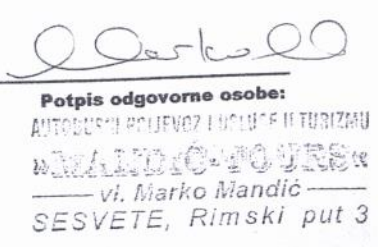 Potpis odgovorne osobe:
AUTOBUSNI PRIJEVOZ I USLUGE U TURIZMU
»MANDIĆ-TOURS«
vl. Marko Mandić
SESVETE, Rimski put 3